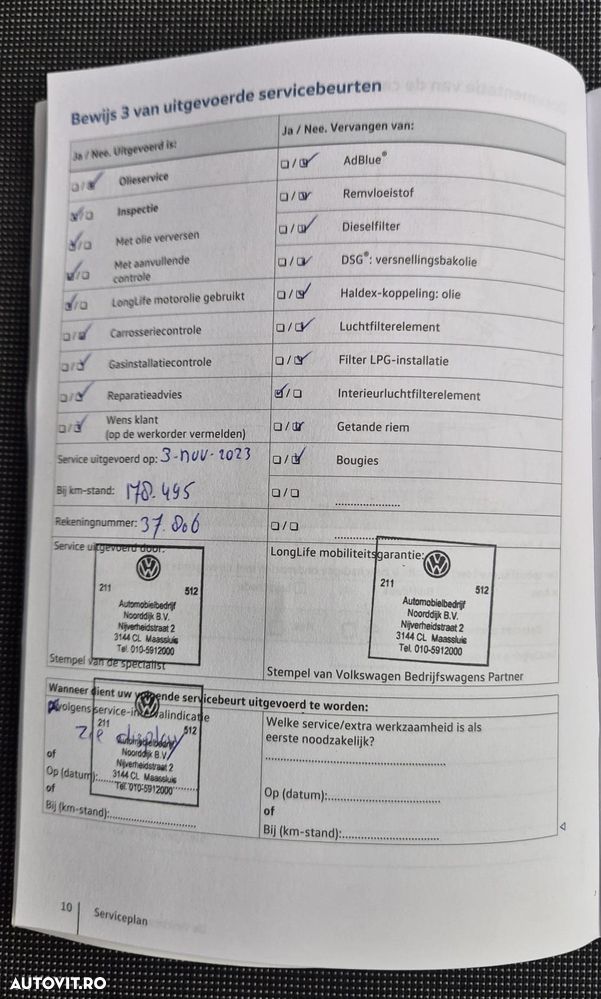 Bewijs 3 van uitgevoerde servicebeurten
Ja / Nee. Uitgevoerd is:
Olieservice
Inspectie
Met olie verversen
Met aanvullende
controle
LongLife motorolie gebruikt
Carrosseriecontrole
Gasinstallatiecontrole
Reparatieadvies
Wens klant
(op de werkorder vermelden)
Service uitgevoerd op: 3-nov-2023
Bij km-stand: 178.495
Rekeningnummer: 37.806
Service uitgevoerd door:
211 512
Automobielbedrijf
Noorddijk B.V.
Nijverheidstraat 2
3144 CL Maassluis
Tel. 010-5912000
Stempel van de specialist
Ja / Nee. Vervangen van:
AdBlue®
Remvloeistof
Dieselfilter
DSG®: versnellingsbakolie
Haldex-koppeling: olie
Luchtfilterelement
Filter LPG-installatie
Interieurluchtfilterelement
Getande riem
Bougies
LongLife mobiliteitsgarantie:
211 512
Automobielbedrijf
Noorddijk B.V.
Nijverheidstraat 2
3144 CL Maassluis
Tel. 010-5912000
Stempel van Volkswagen Bedrijfswagens Partner
Wanneer dient uw volgende servicebeurt uitgevoerd te worden:
volgens service-intervalindicatie
zie display
211 512
Automobielbedrijf
Noorddijk B.V.
Nijverheidstraat 2
3144 CL Maassluis
Tel. 010-5912000
of
Op (datum):
of
Bij (km-stand):
Welke service/extra werkzaamheid is als
eerste noodzakelijk?
Op (datum):
of
Bij (km-stand):
10 Serviceplan
AUTOVIT.RO